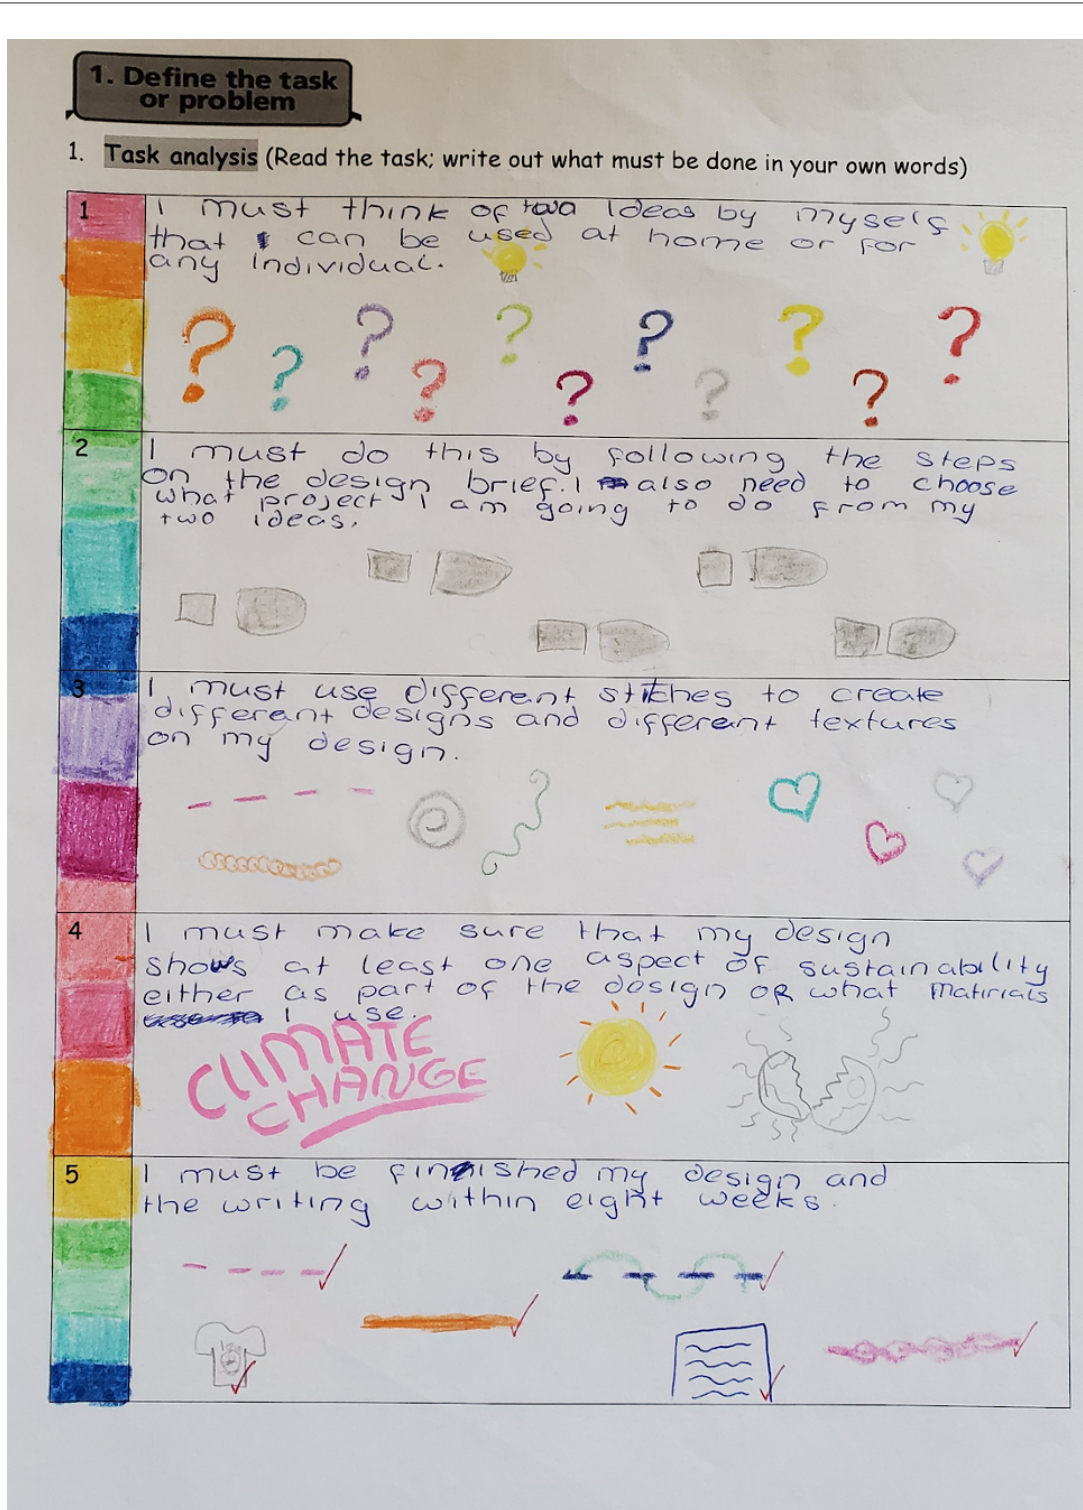 1. Define the task
or problem
1. Task analysis (Read the task; write out what must be done in your own words)
1
I must think of two ideas by myself
that can be used at home or for
any individual.
? ? ? ? ? ? ? ? ? ? ?
2
I must do this by following the steps
on the design brief. I also need to choose
what project I am going to do from my
two ideas.
3
I must use different stitches to create
different designs and different textures
on my design.
4
I must make sure that my design
shows at least one aspect of sustainability
either as part of the design OR what matirials
I use.
CLIMATE
CHANGE
5
I must be finished my design and
the writing within eight weeks.